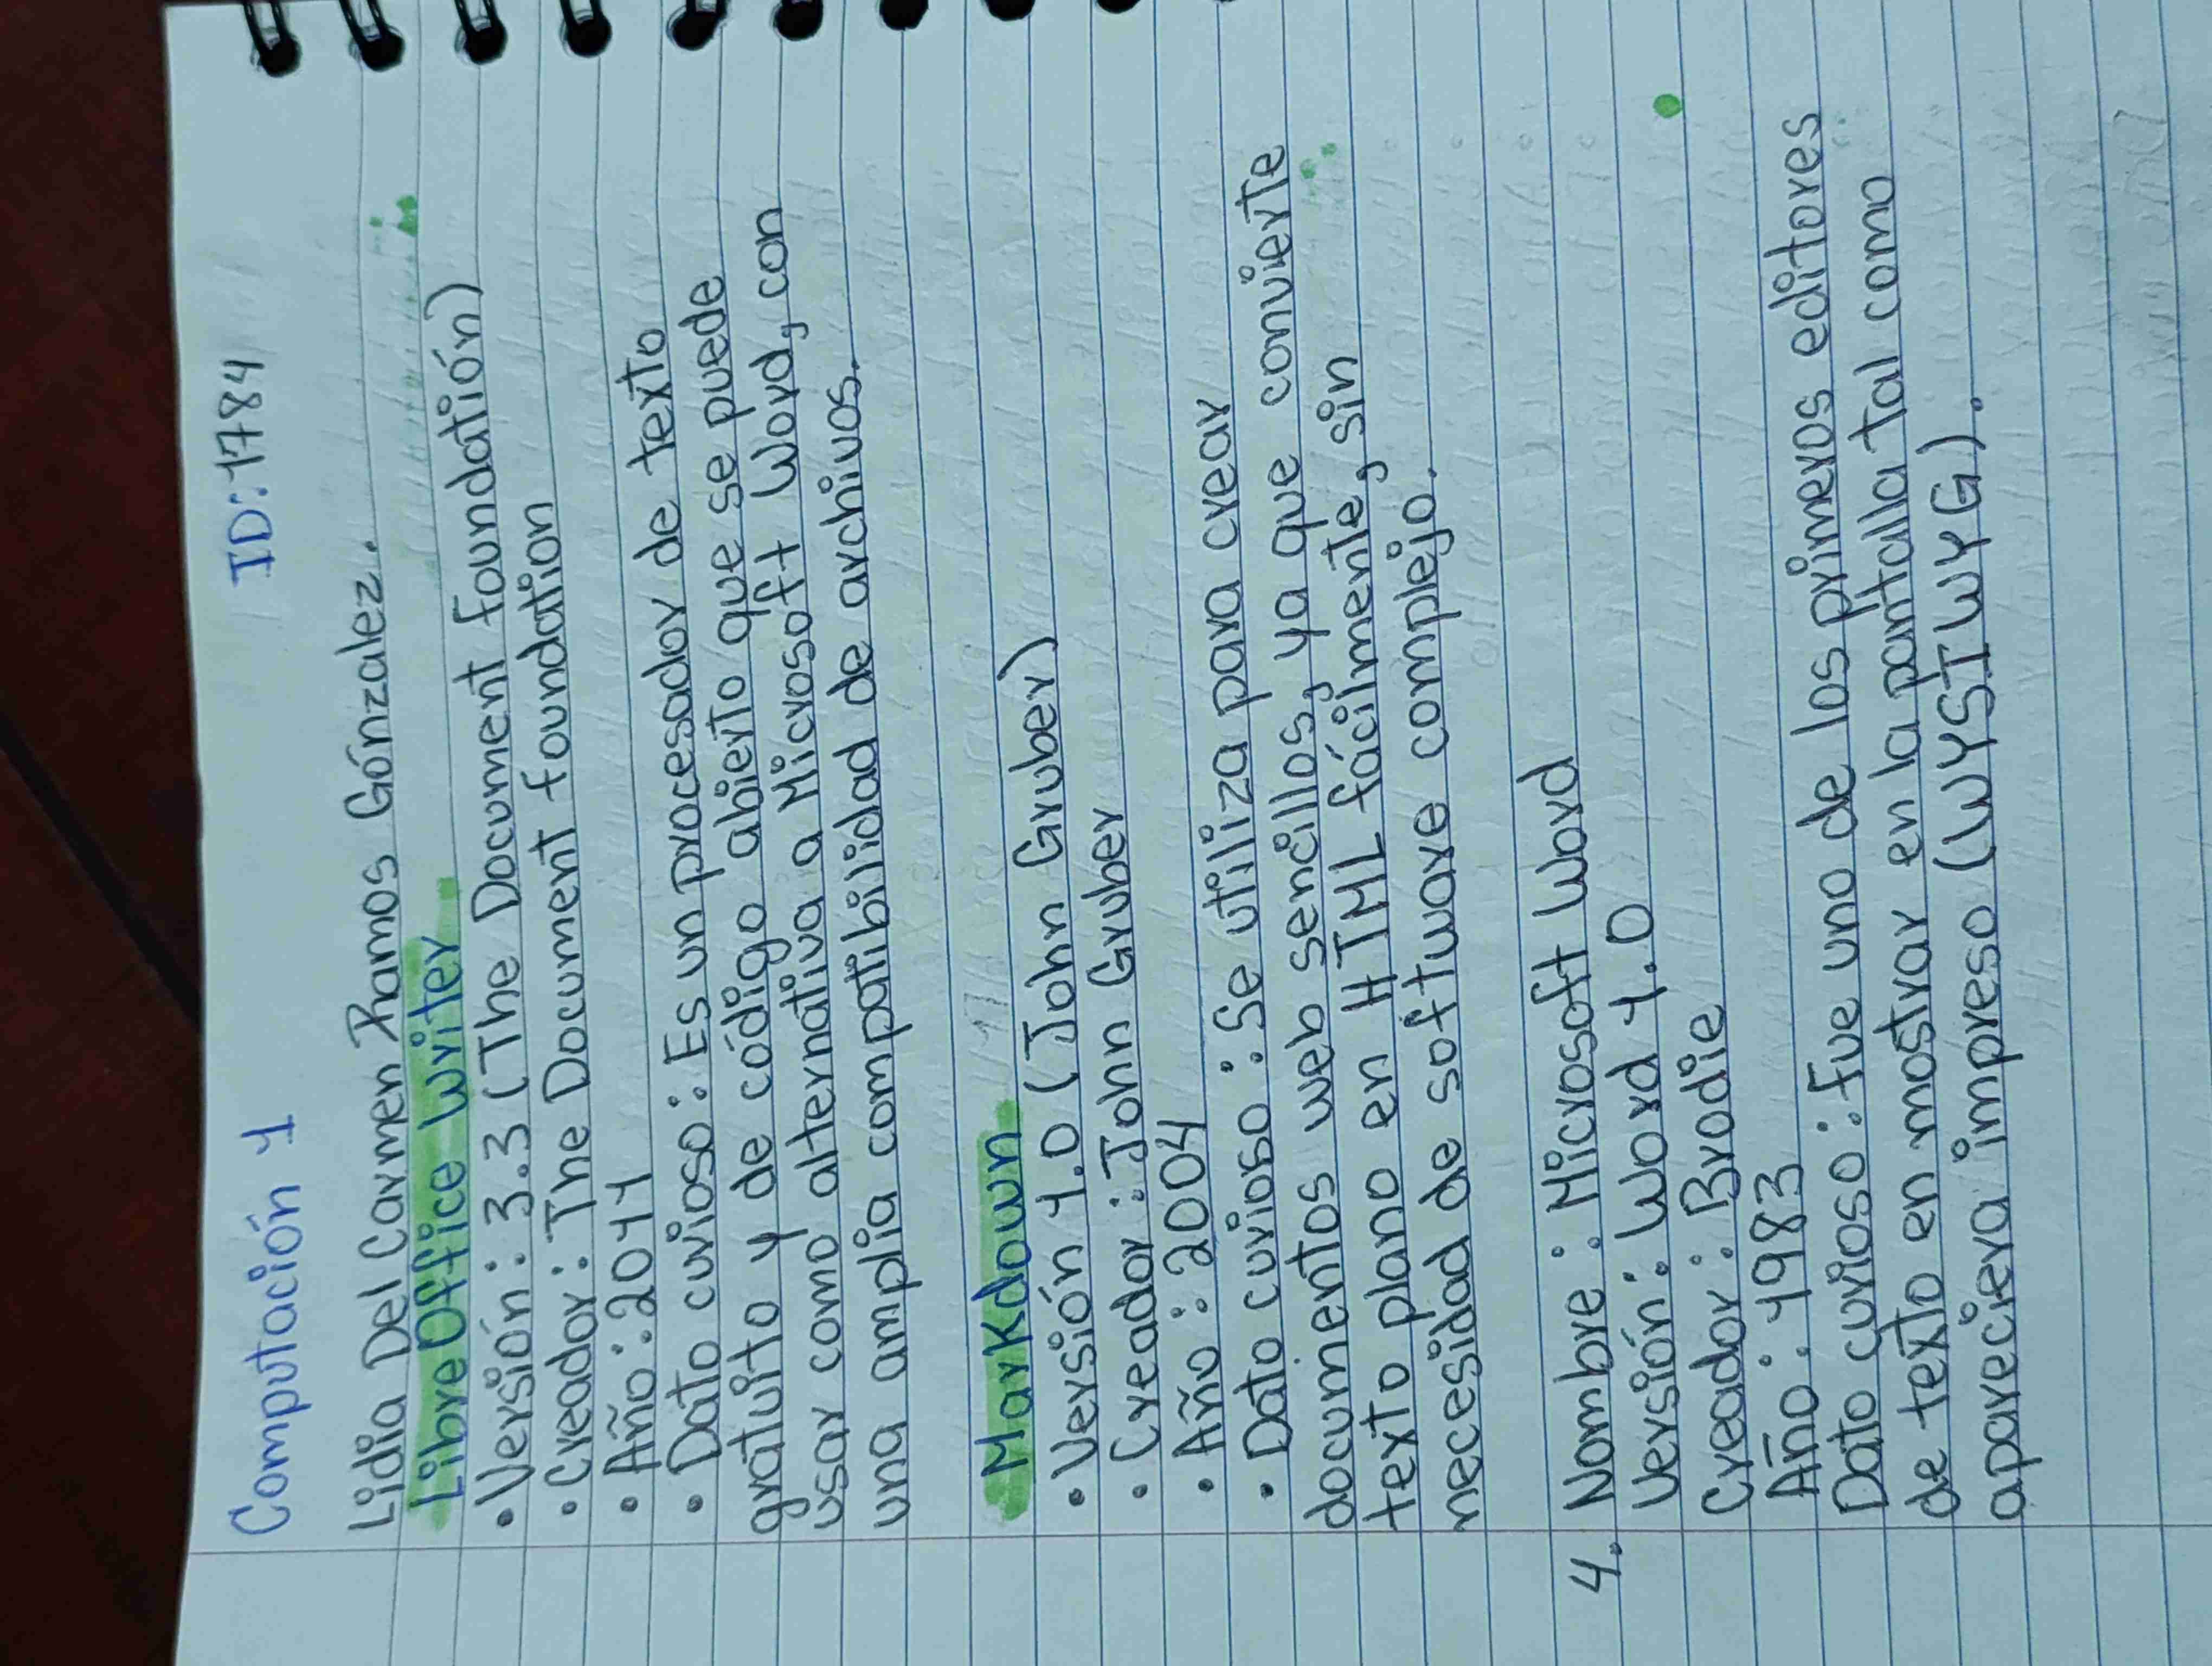 Computación 1 ID:1784
Lidia Del Carmen Ramos Gónzalez.
LibreOffice Writer
• Versión: 3.3 (The Document Foundatión)
• Creador: The Document Foundation
• Año: 2011
• Dato curioso: Es un procesador de texto
gratuito y de código abierto que se puede
usar como alternativa a Microsoft Word, con
una amplia compatibilidad de archivos.
Markdown
• Versión 1.0 (John Gruber)
• Creador: John Gruber
• Año: 2004
• Dato curioso: Se utiliza para crear
documentos web sencillos, ya que convierte
texto plano en HTML fácilmente, sin
necesidad de software complejo.
4. Nombre: Microsoft Word
Versión: Word 1.0
Creador: Brodie
Año: 1983
Dato curioso: Fue uno de los primeros editores
de texto en mostrar en la pantalla tal como
apareciera impreso (WYSIWYG).